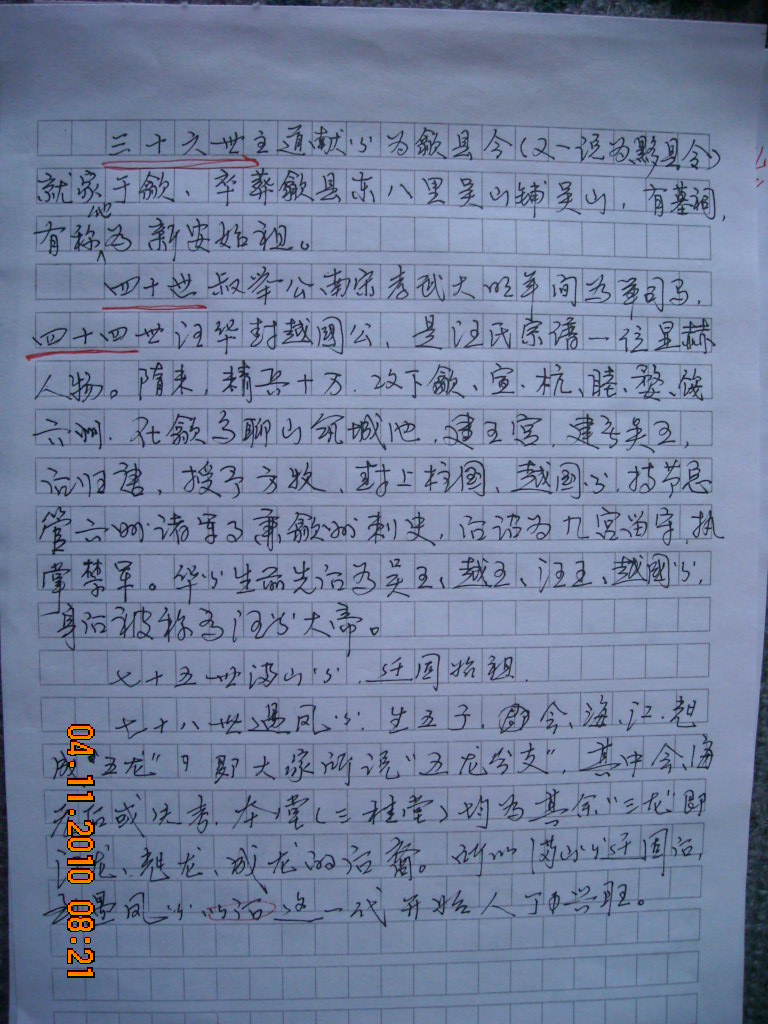 三十六世主道献公为歙县令(又一说为黟县令)
就家于歙、卒葬歙县东八里吴山铺吴山，有墓祠，
有称他为新安始祖。
四十世叔举公南宋孝武大明年间为军司马，
四十四世汪华封越國公、是汪氏宗谱一位显赫
人物。隋末，精兵十万．攻下歙、宣、杭、睦、婺、饶
六州．在歙乌聊山筑城池．建王宫．建号吴王，
后归唐，授予方牧、封上柱国、越国公．持节总
管六州诸军事兼歙州刺史，后诏为九宫留守．执
掌禁军。华公生前先后为吴王、越王、汪王、越國公，
身后被称为汪公大帝。
七十五世 山公．环田始祖．
七十八世暹风公．生五子．即会、海、江、起
成"五龙" 即大家所说"五龙分支"．其中会、海
无后或失考．本堂(三桂堂)均为其余"三龙"即
江龙、起龙、成龙的后裔。所以 山公环田后，
去暹风公的后这一代开始人丁兴旺。
04.11.2010 08:21